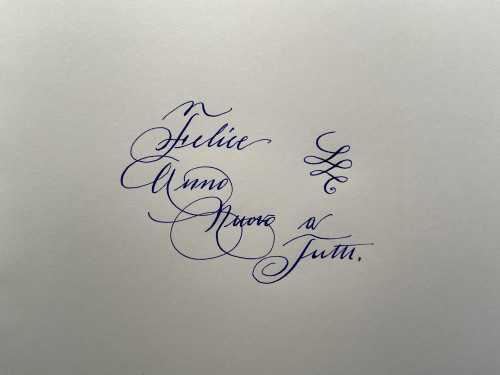 Felice
Anno
Nuovo a
Tutti.